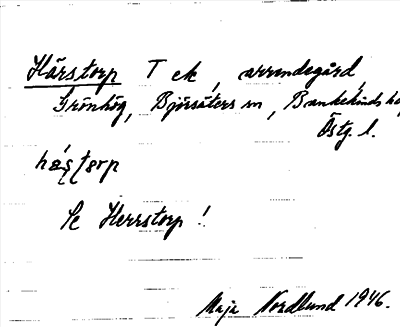 Härstorp T ek, arrendegård,
Grönhög, Björsäters sn, Bankekinds hd
Östg. l.
Se Herrstorp!
Maja Nordlund 1946.